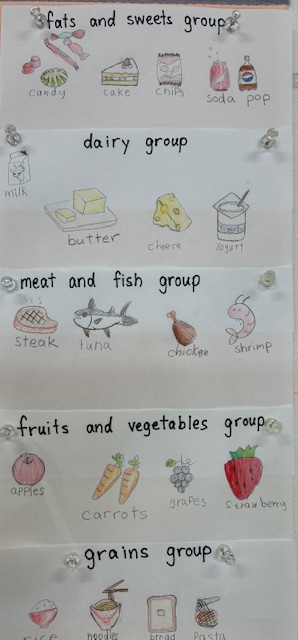 fats and sweets group
candy cake chips soda pop
dairy group
milk
butter cheese yogurt
meat and fish group
steak tuna chicken shrimp
fruits and vegetables group
apples carrots grapes strawberry
grains group
rice noodles bread pasta